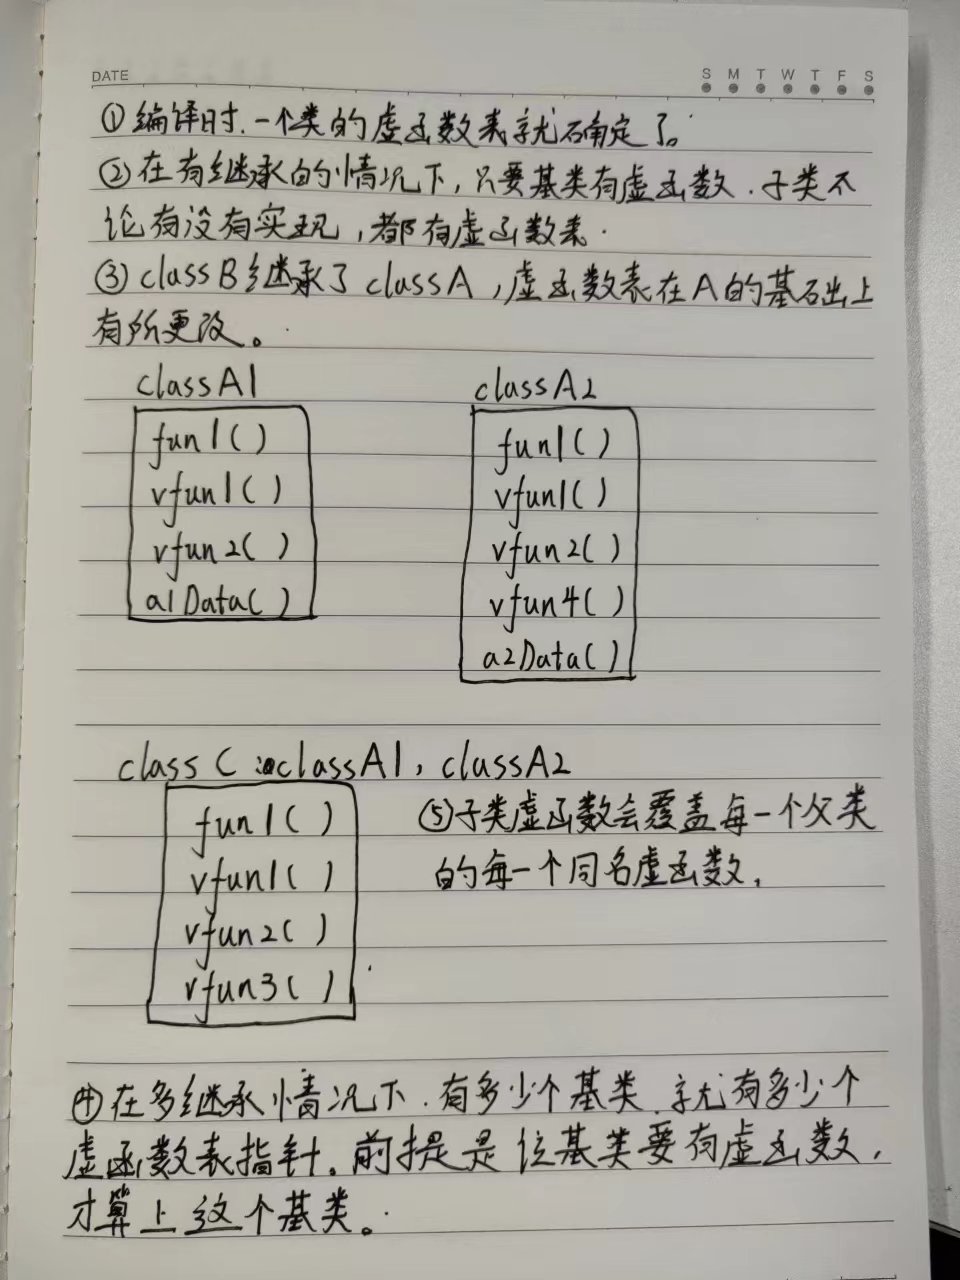 DATE
S M T W T F S
①编译时.一个类的虚函数表就确定了。
②在有继承的情况下,只要基类有虚函数.子类不
论有没有实现,都有虚函数表.
③classB继承了classA,虚函数表在A的基础上
有所更改。
classA1
fun1()
vfun1()
vfun2()
a1Data()
classA2
fun1()
vfun1()
vfun2()
vfun4()
a2Data()
class C:classA1,classA2
fun1()
vfun1()
vfun2()
vfun3()
⑤子类虚函数会覆盖每一个父类
的每一个同名虚函数,
④在多继承情况下.有多少个基类.就有多少个
虚函数表指针。前提是该基类要有虚函数,
才算上这个基类。